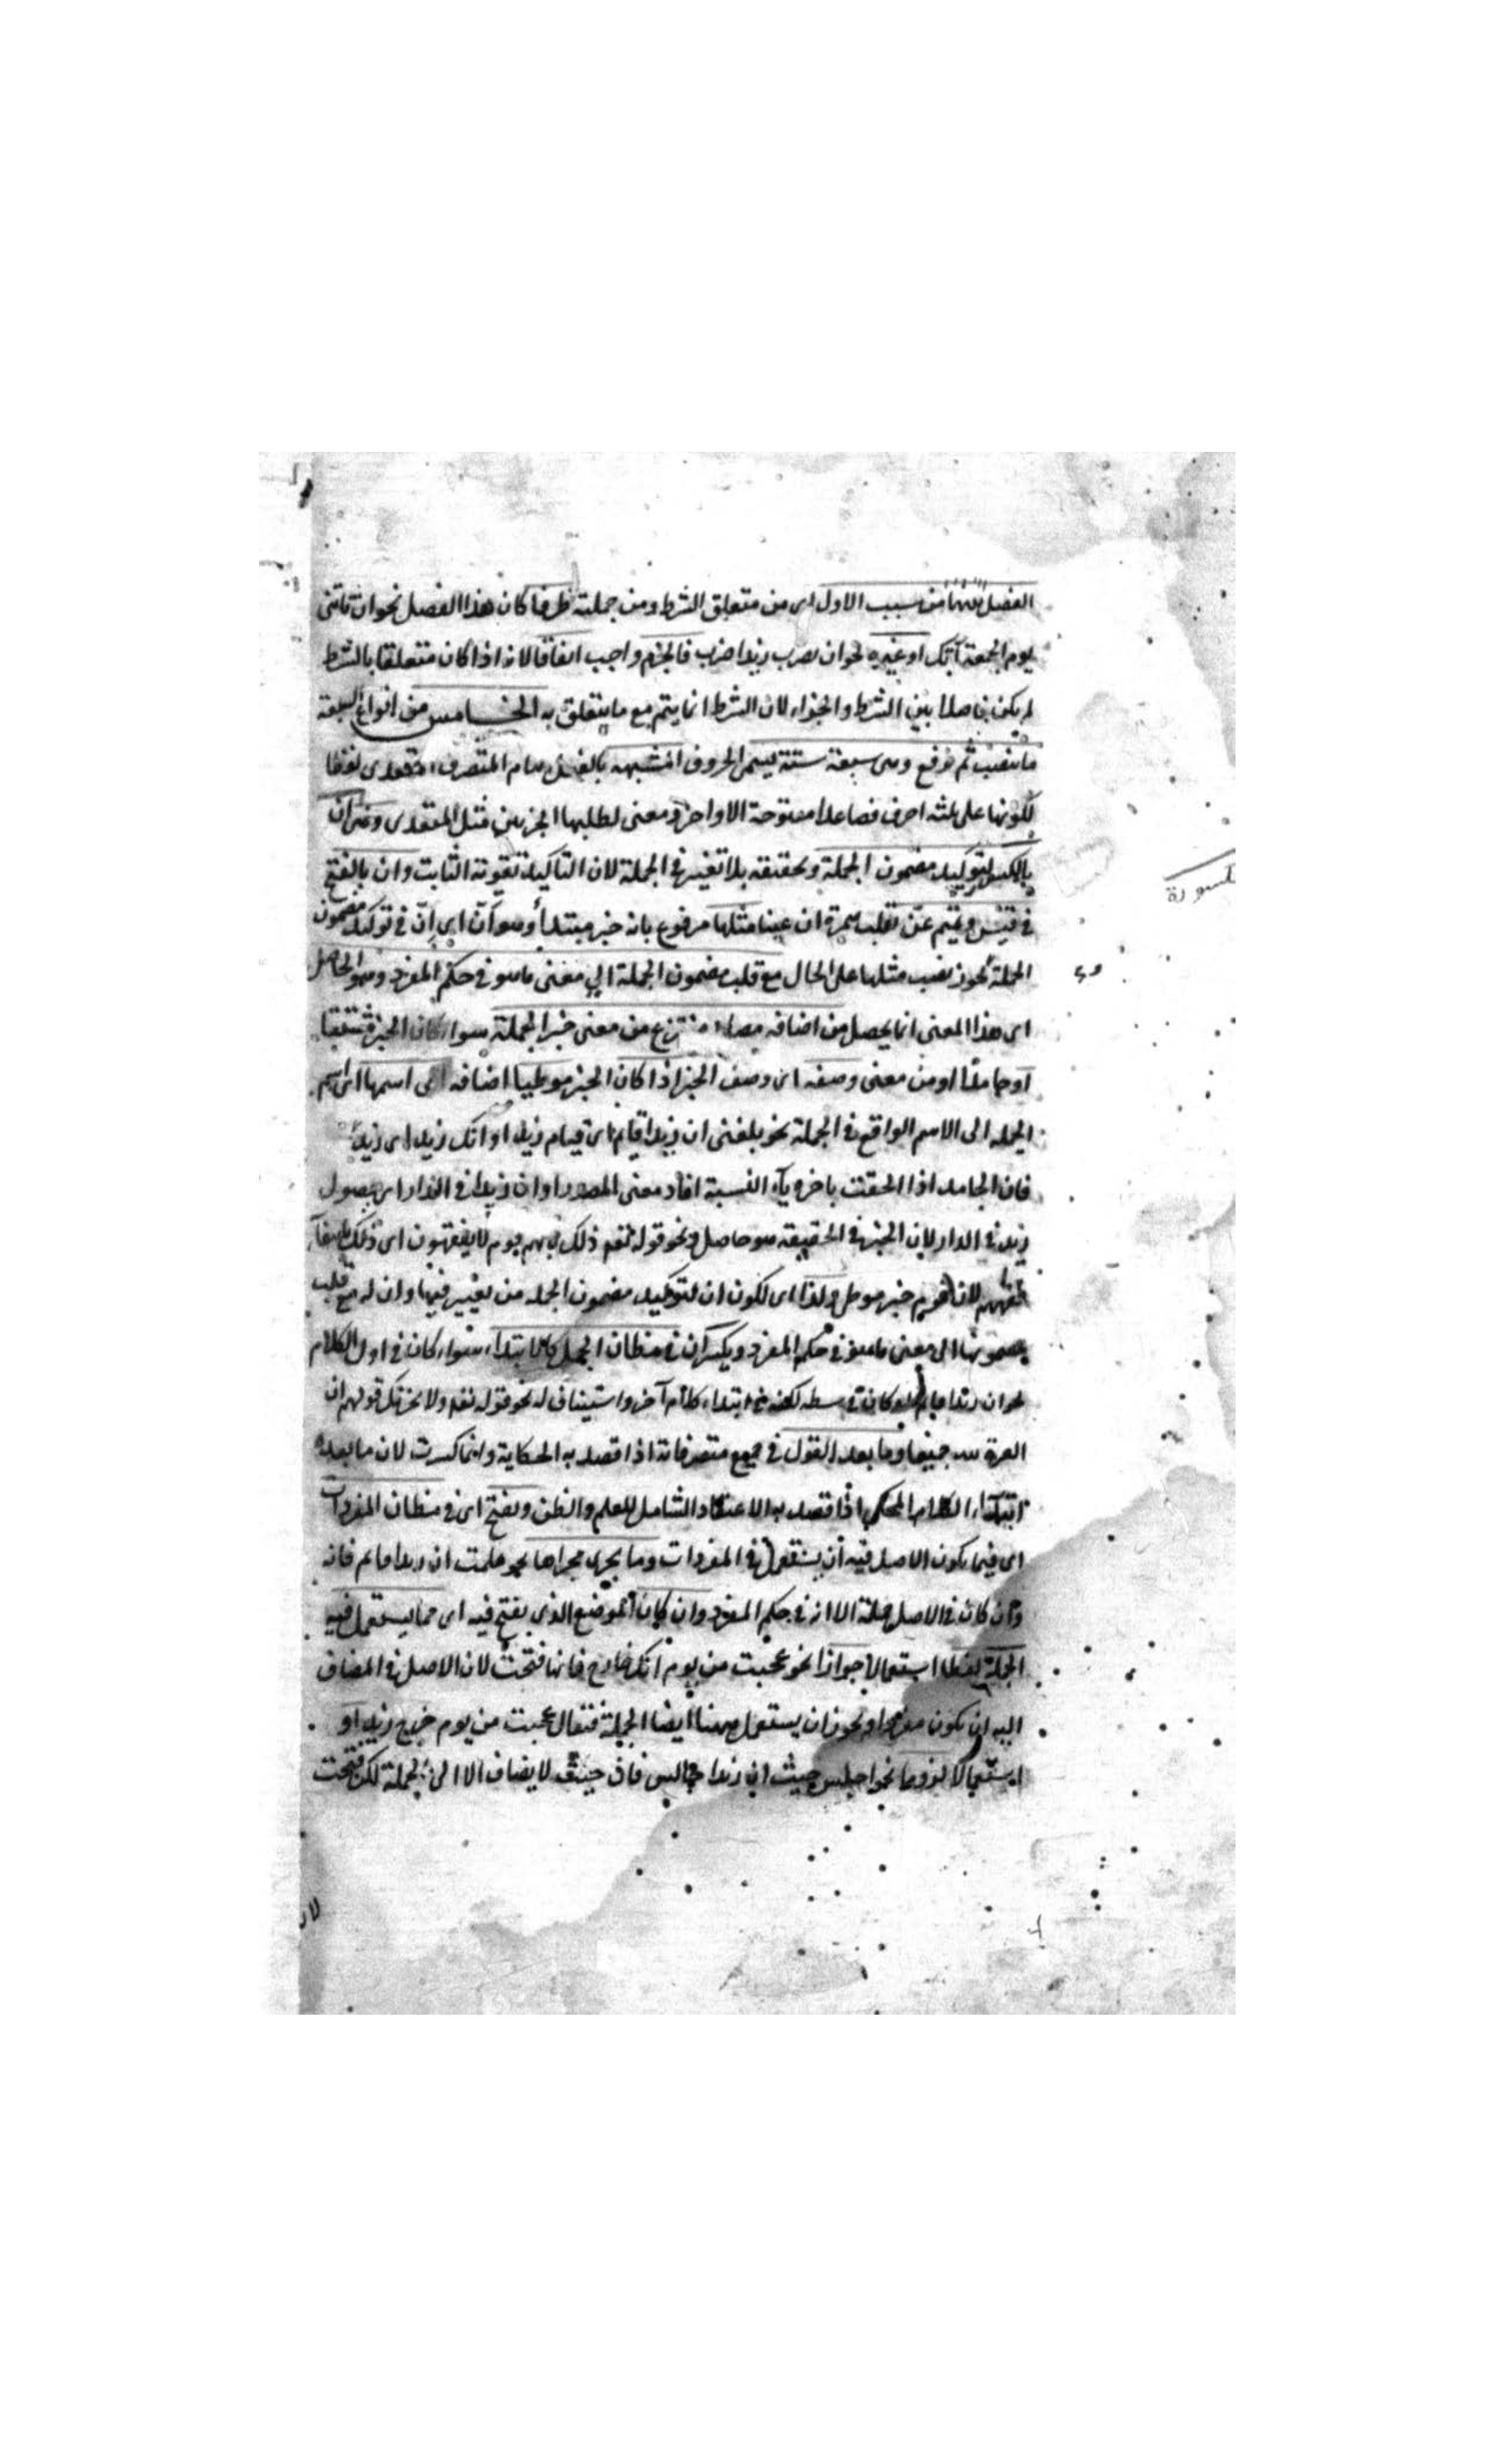 الفصل بينهما من سبب الاول اى من متعلق الشرط ومن جملته ظرفا كان هذا الفصل نحو ان تاتنى
يوم الجمعة آتك او غيره نحو ان تضرب زيدا اضرب فالجزم واجب اتفاقا لانه اذا كان متعلقا بالشرط
لم يكن فاصلا بين الشرط والجزاء لان الشرط انما يتم مع ما يتعلق به الخامس من انواع السبعة
ما ينصب ثم يرفع وهى سبعة ستة يسمى الحروف المشبهه بالفعل التام المتصرف المتعدى لفظا
لكونها على ثلثه احرف فصاعدا مفتوحة الاواخر ومعنى لطلبها الجزئين مثل المتعدى وهى ان
بالكسر لتوكيد مضمون الجملة وتحقيقه بلا تغيير فى الجملة لان التاكيد تقوية الثابت وان بالفتح
فى قيس وتميم عن تقلب همزة ان عينا مثلها مرفوع بانه خبر مبتدأ وهو أن اى ان فى توكيد مضمون
الجملة يجوز نصب مثلها على الحال مع قلب مضمون الجملة الى معنى ما هو فى حكم المفرد وهو الحاصل
اى هذا المعنى انما يحصل من اضافه مصدر منتزع من معنى خبر الجملة سواء كان الخبر مشتقا
او جامدا او من معنى وصفه اى وصف الخبر اذا كان الخبر موطيا اضافه الى اسمها اى اسم
الجمله الى الاسم الواقع فى الجملة نحو بلغنى ان زيدا قايم اى قيام زيد او انك زيد اى زيد
فان الجامد اذا الحقت باخره ياء النسبة افاد معنى المصدر او ان زيدا فى الدار اى حصول
زيد فى الدار لان الخبر فى الحقيقه هو حاصل ونحو قوله تعم ذلك بانهم قوم لا يفقهون اى ذلك
لانهم قوم خبر موطى ولذا اى لكون ان لتوكيد مضمون الجمله من تغيير فيها وان له مع قلب
مضمونها الى معنى ما هو فى حكم المفرد ويكسر ان فى مظان الجمل كالابتداء سواء كان فى اول الكلام
نحو ان زيدا قايم او كان فى وسطه لكنه فى ابتداء كلام آخر واستيناف له نحو قوله تعم ولا يحزنك قولهم ان
العزة لله جميعا وما بعد القول فى جميع متصرفاته اذا قصد به الحكاية وانما كسرت لان ما بعده
ابتداء الكلام المحكى اذا قصد به الاعتقاد الشامل للعلم والظن وتفتح اى فى مظان المفردات
اى فيما يكون الاصل فيه ان يستعمل فى المفردات وما يجرى مجراها نحو علمت ان زيدا قايم فانه
وان كان فى الاصل جملة الا انه فى حكم المفرد وان كان الموضع الذى يفتح فيه اى مما يستعمل فيه
الجملة لفظا استعمالا جوازا نحو عجبت من يوم انك خارج فانها فتحت لان الاصل فى المضاف
اليه ان يكون مفردا ويجوز ان يستعمل ههنا ايضا الجملة فتقال عجبت من يوم خرج زيد او
استعمالا لزوما نحو اجلس حيث ان زيدا جالس فان حيث لا يضاف الا الى الجملة لكن فتحت
لان